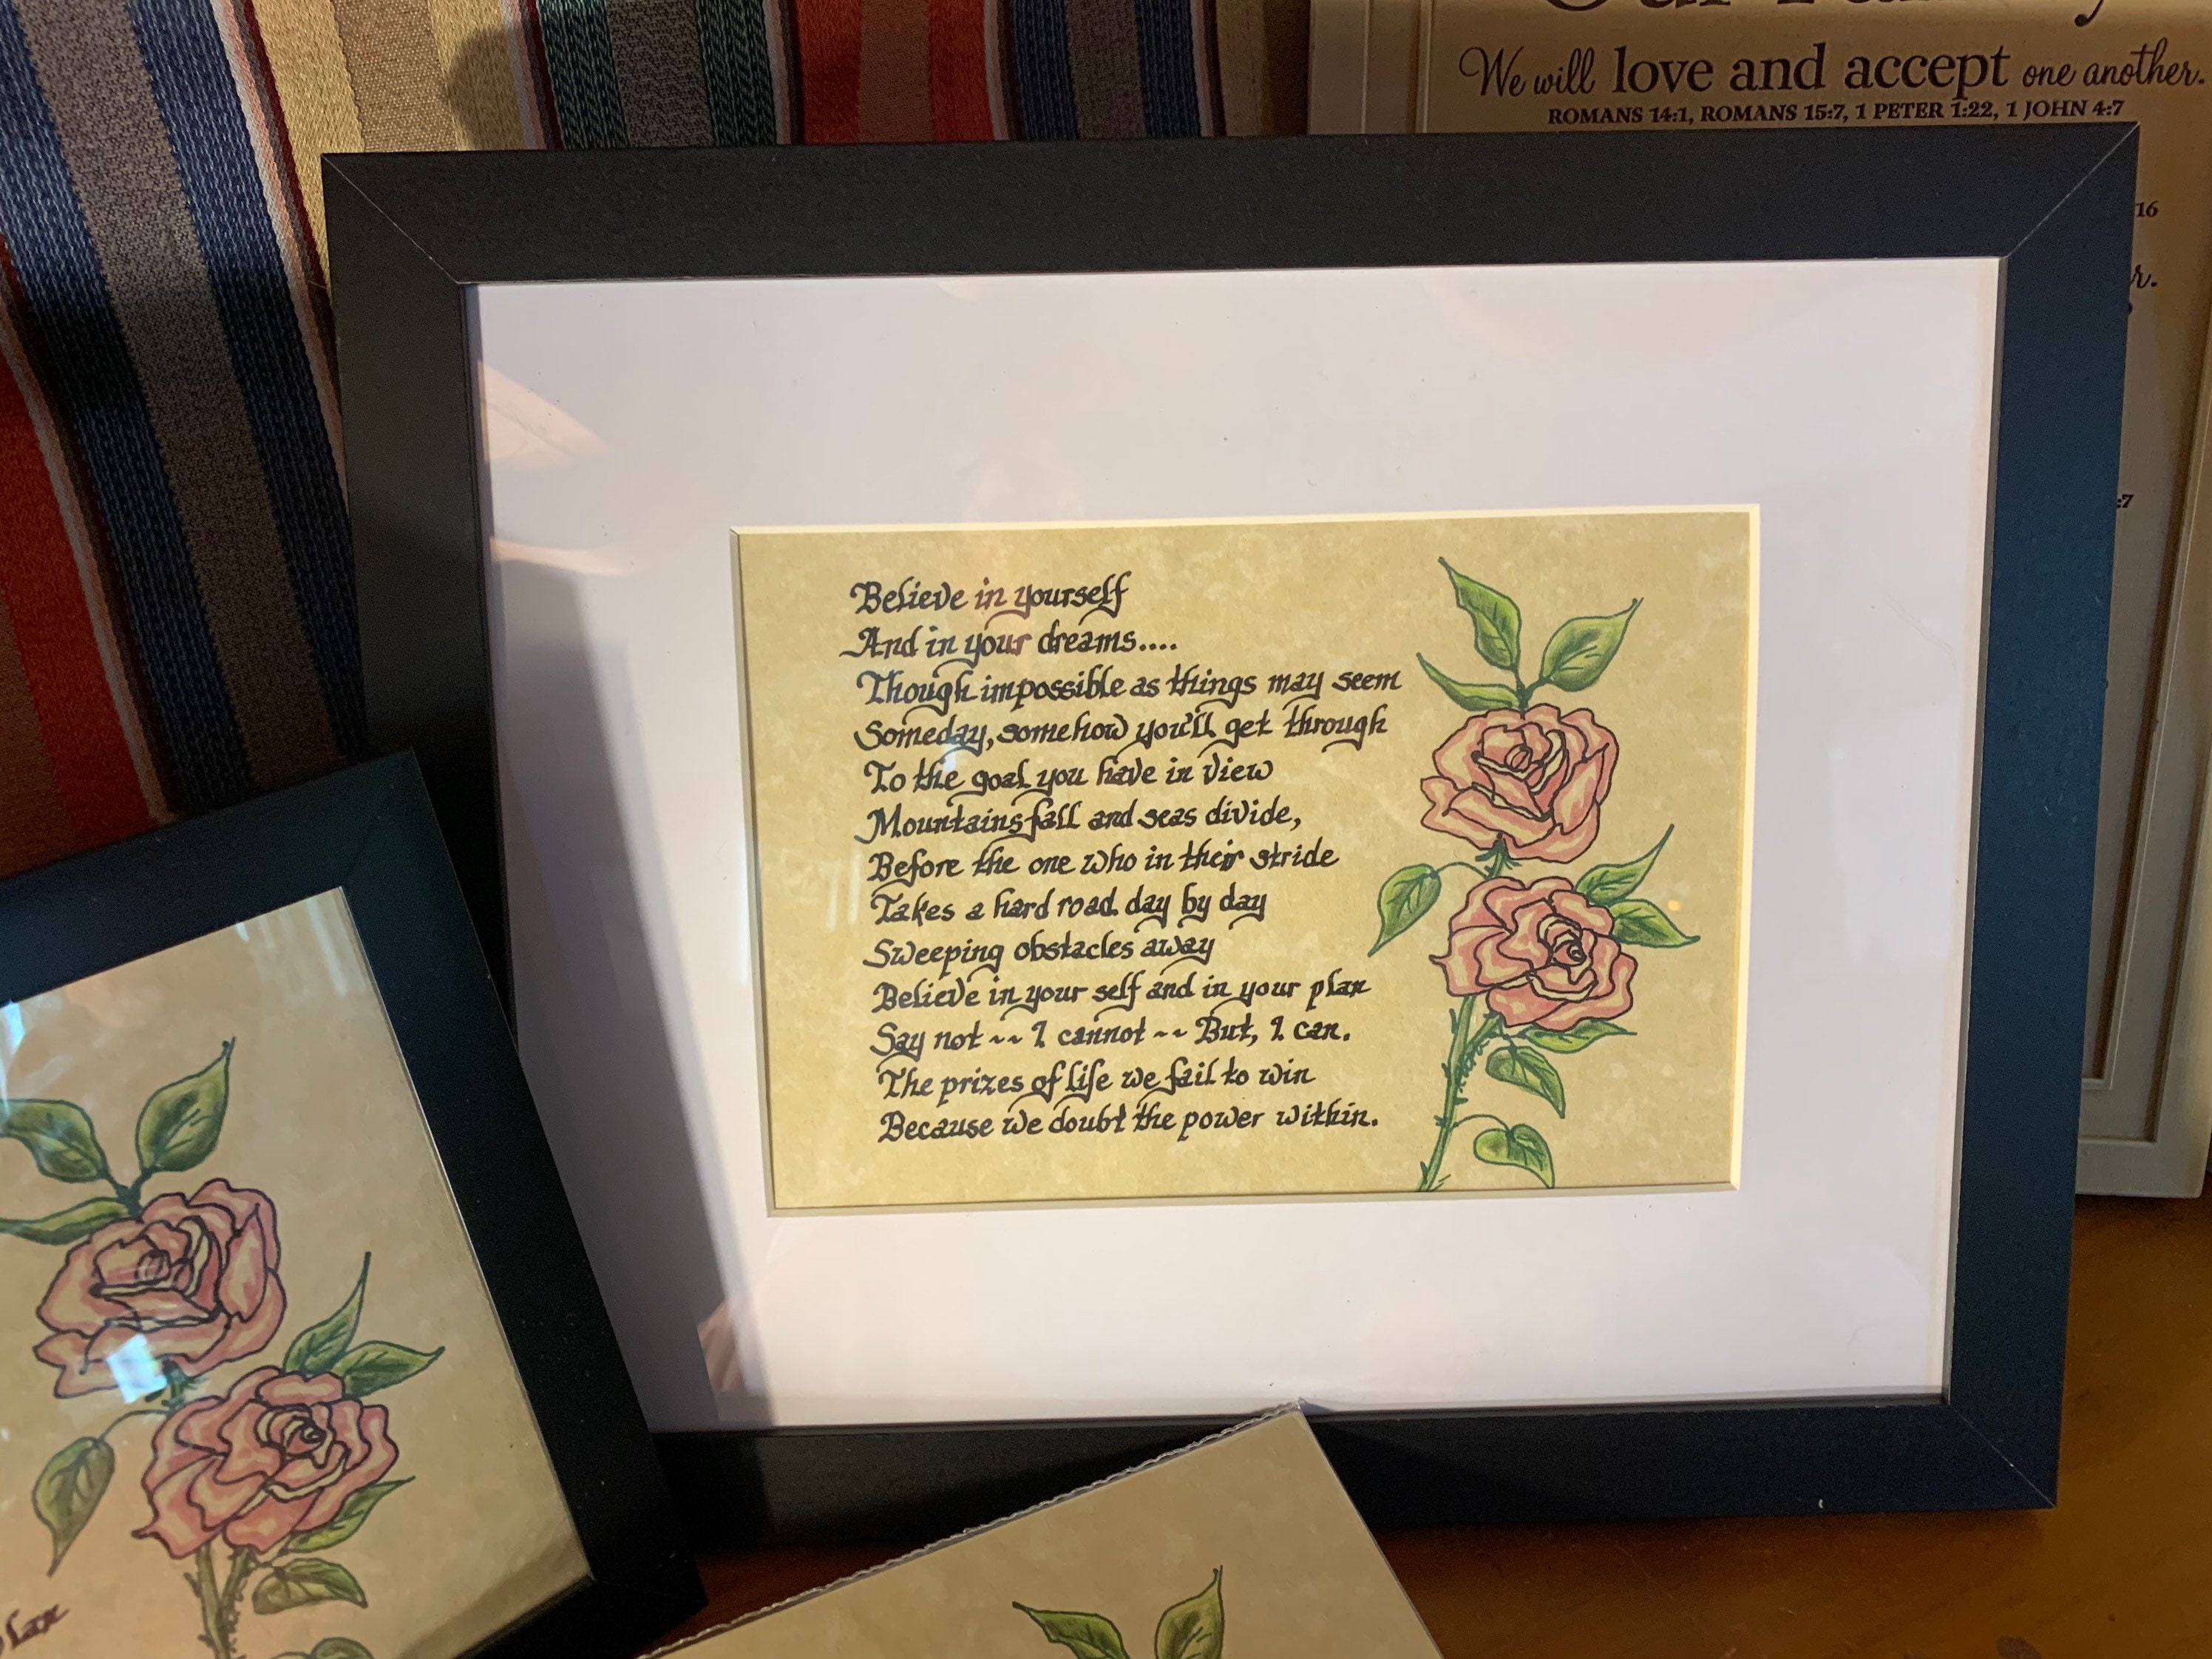 We will love and accept one another.
ROMANS 14:1, ROMANS 15:7, 1 PETER 1:22, 1 JOHN 4:7
Believe in yourself
And in your dreams....
Though impossible as things may seem
Someday, somehow you'll get through
To the goal you have in view
Mountains fall and seas divide,
Before the one who in their stride
Takes a hard road day by day
Sweeping obstacles away
Believe in your self and in your plan
Say not ~~ I cannot ~~ But, I can.
The prizes of life we fail to win
Because we doubt the power within.